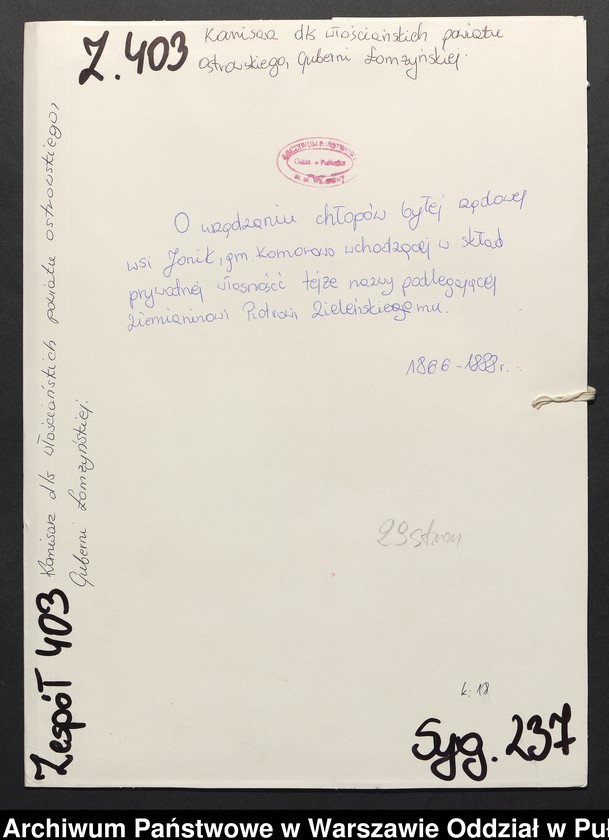 Z. 403
Komisarz dls włościańskich powiatu
ostrowskiego, Guberni Łomżyńskiej.
ARCHIWUM PAŃSTWOWE
Oddz. w Pułtusku
m. st. Warszawy
O urządzeniu chłopów byłej rządowej
wsi Jonik, gm. Komorowo wchodzącej w skład
prywatnej własność tejże nazwy podlegającej
ziemianinowi Piotrowi Zieleńskiegomu.
1866-1888r.
29 stron
k. 18
Syg. 237
Zespół 403
Komisarz dls włościańskich powiatu ostrowskiego,
Guberni Łomżyńskiej.
Archiwum Państwowe w Warszawie Oddział w Puł